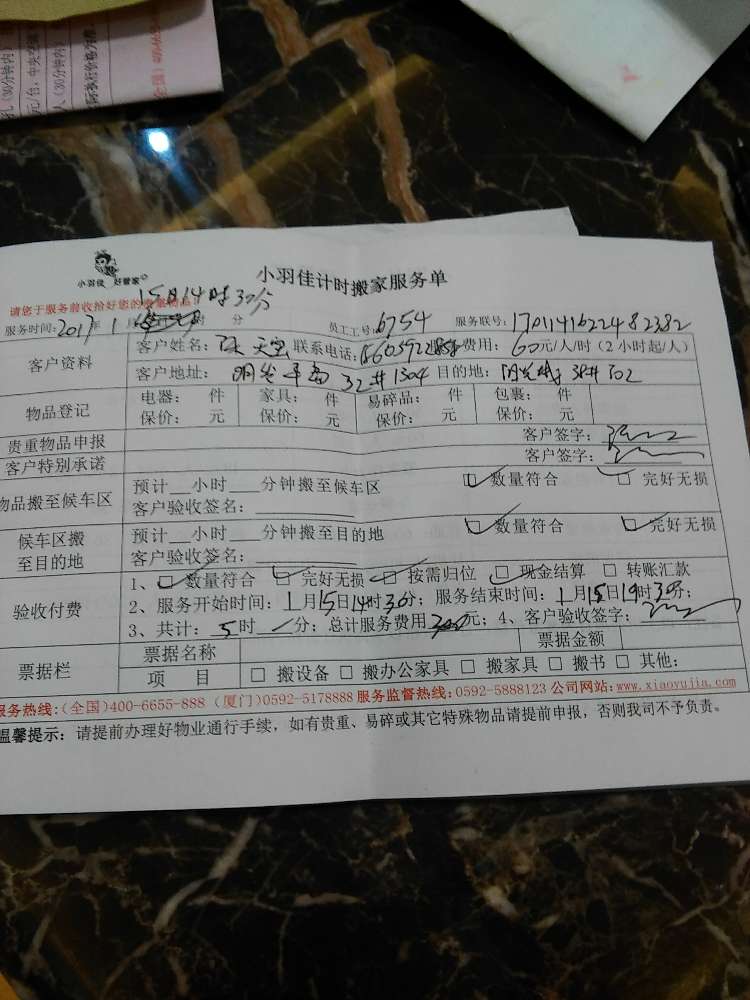 (30分钟内)
元/台, 中央空调
人（30分钟内）
小羽佳 好管家
小羽佳计时搬家服务单
请您于服务前收拾好您的贵重物品！
15日14时30分
服务时间：2017年1月 时 分 员工工号：6754 服务联号：1701141622482382
客户资料
客户姓名： 天宝 联系电话： 费用：60元/人/时（2小时起/人）
客户地址： 32# 1304 目的地： 702
物品登记
电器： 件 家具： 件 易碎品： 件 包裹： 件
保价： 元 保价： 元 保价： 元 保价： 元
贵重物品申报 客户签字：
客户特别承诺 客户签字：
物品搬至候车区
预计__小时___分钟搬至候车区 ☑数量符合 ☑完好无损
客户验收签名：
候车区搬至目的地
预计__小时___分钟搬至目的地 ☑数量符合 ☑完好无损
客户验收签名：
验收付费
1、☑数量符合 ☑完好无损 ☑按需归位 ☑现金结算 □转账汇款
2、服务开始时间：1月15日14时30分；服务结束时间：1月15日19时30分；
3、共计：5时/分；总计服务费用 元；4、客户验收签字：
票据栏
票据名称 票据金额
项 目 □搬设备 □搬办公家具 □搬家具 □搬书 □其他：
服务热线：(全国)400-6655-888 (厦门)0592-5178888 服务监督热线：0592-5888123 公司网站：www.xiaoyujia.com
温馨提示：请提前办理好物业通行手续，如有贵重、易碎或其它特殊物品请提前申报，否则我司不予负责。